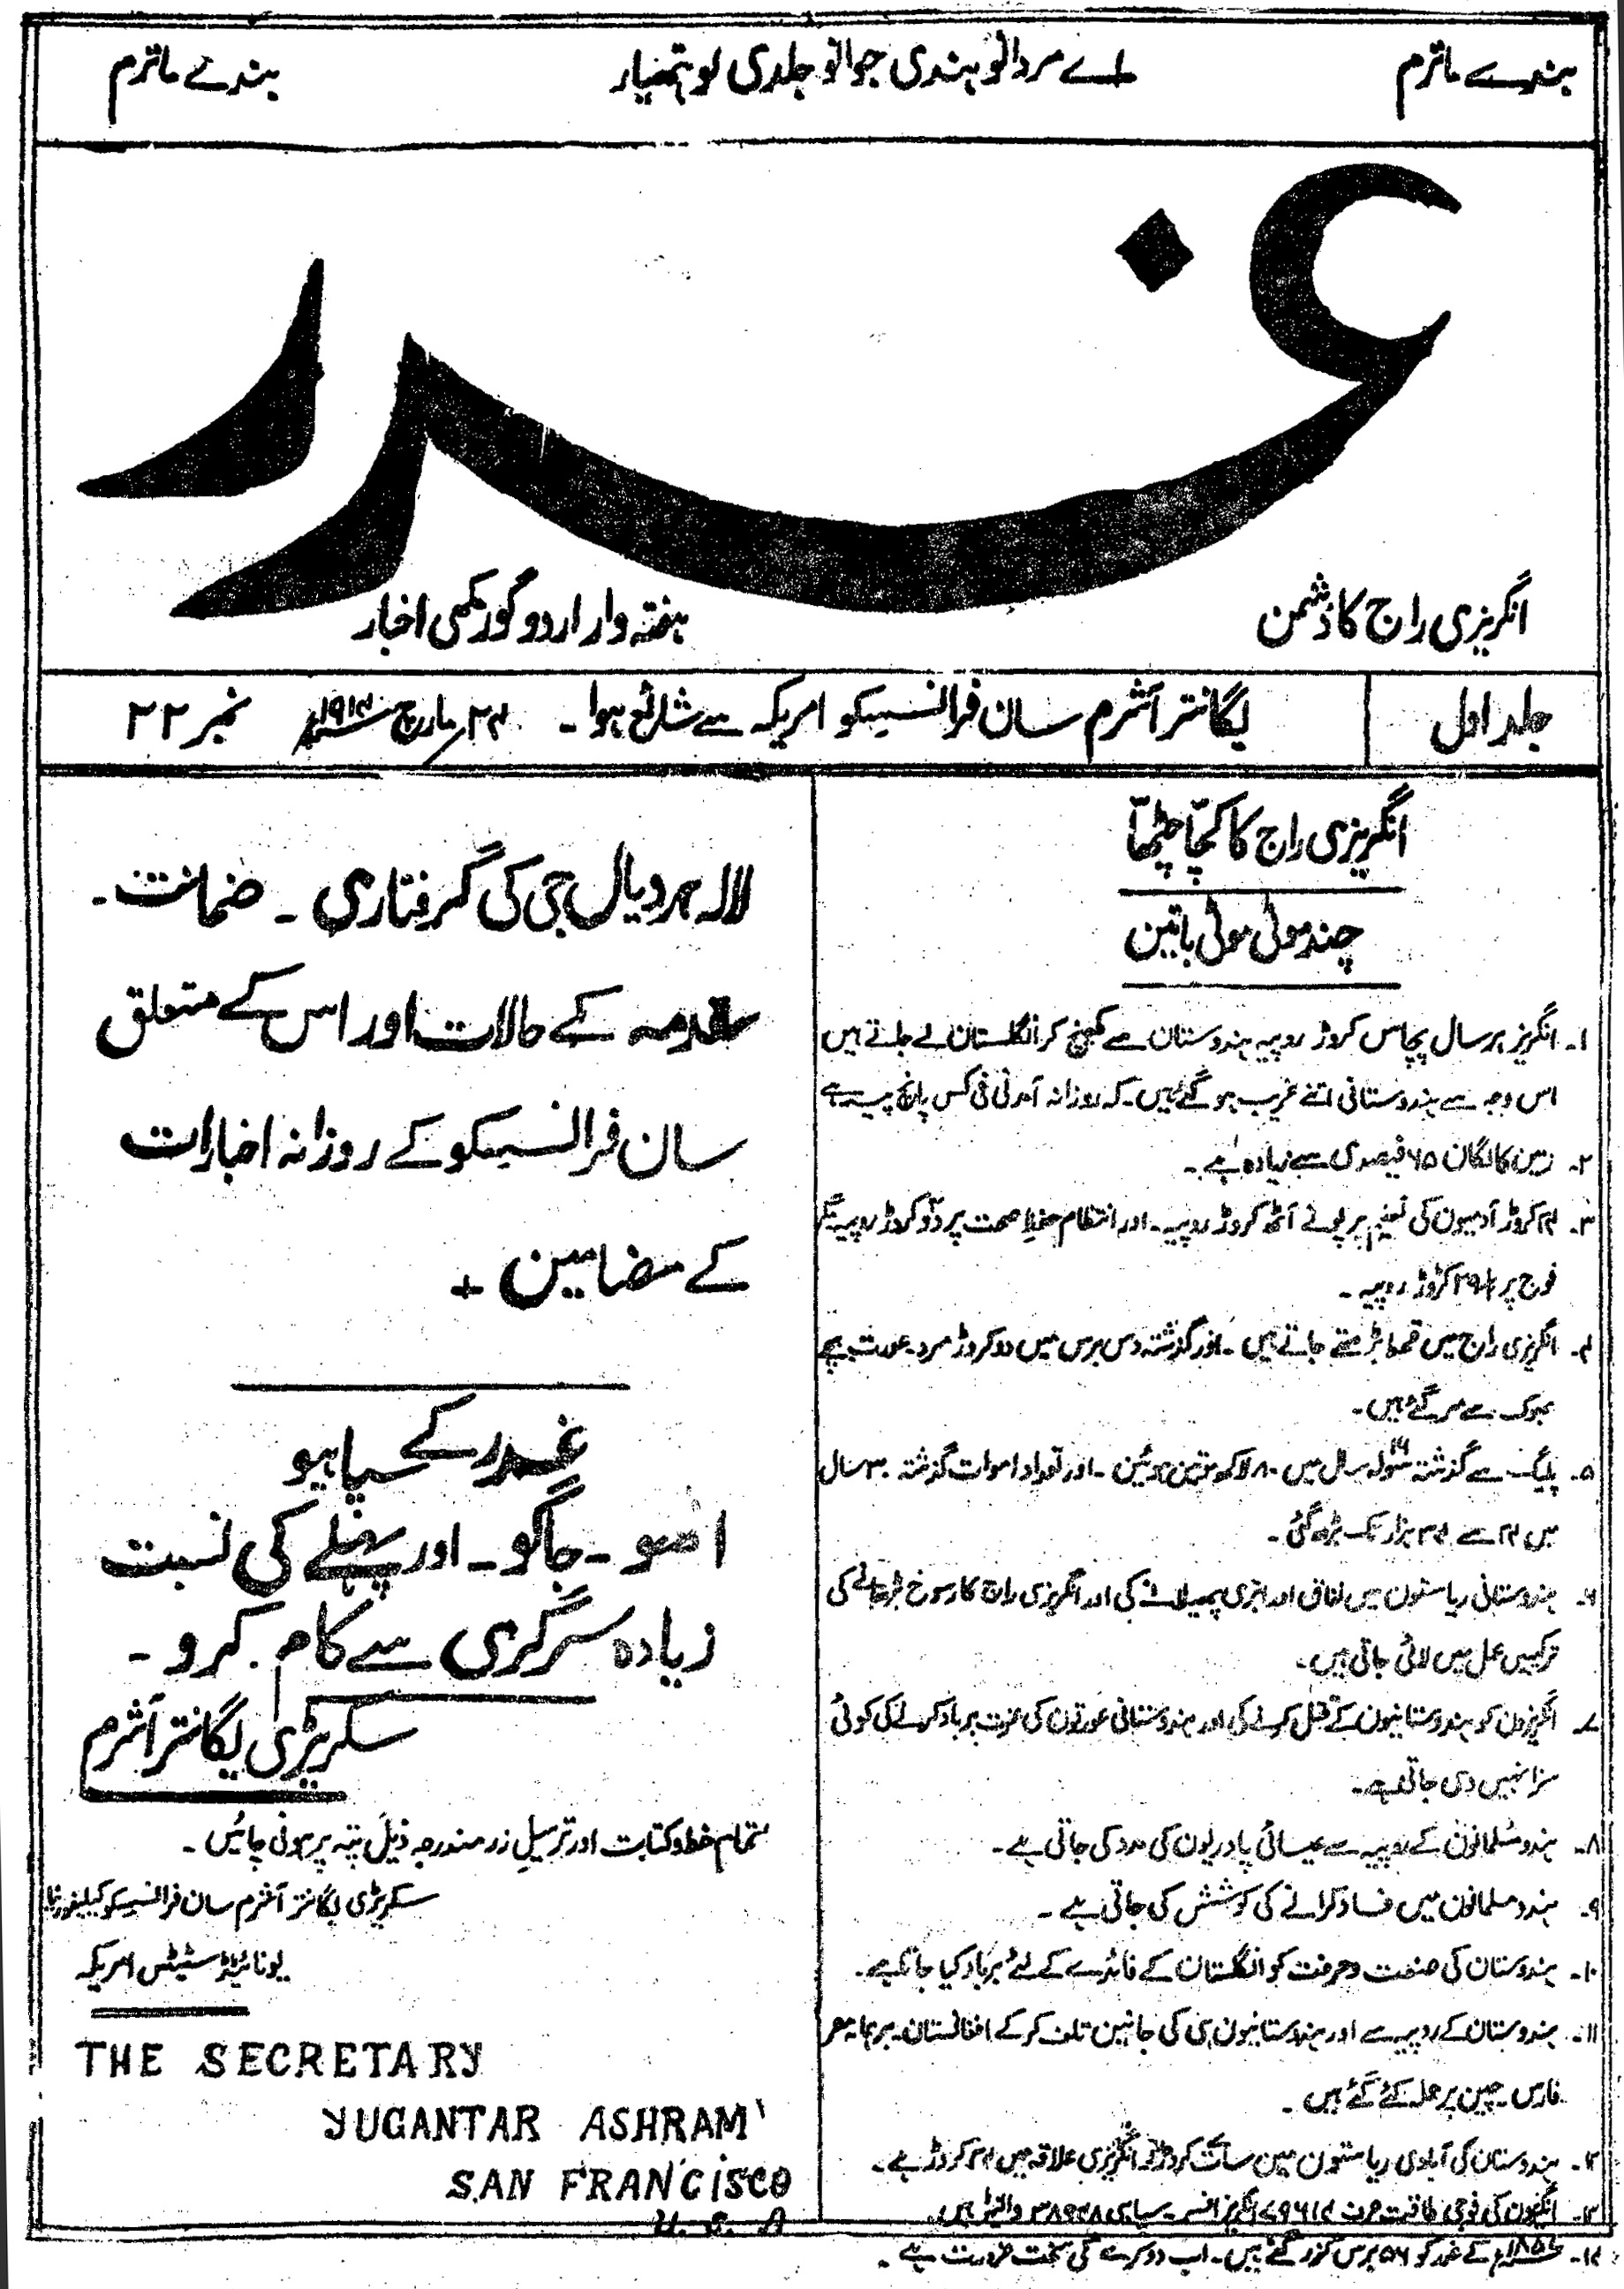 بندے ماترم
اے مردانو ہندی جوانو جلدی لو ہتھیار
بندے ماترم
غدر
انگریزی راج کا دشمن
ہفتہ وار اردو گورمکھی اخبار
جلد اول
یگانتر آشرم سان فرانسیسکو امریکہ سے شائع ہوا ۔ ۲۴ مارچ ۱۹۱۴ نمبر ۲۲
انگریزی راج کا کچّا چٹھّا
چند موٹی موٹی باتین
۱۔ انگریز ہر سال پچاس کروڑ روپیہ ہندوستان سے کھینچ کر انگلستان لے جاتے ہیں
اس وجہ سے ہندوستانی اتنے غریب ہو گئے ہیں ۔ کہ روزانہ آمدنی فی کس پانچ پیسہ ہے
۲۔ زمین کا لگان ۶۵ فیصدی سے زیادہ ہے ۔
۳۔ کروڑ آدمیون کی تعلیم پر پونے آٹھ کروڑ روپیہ ۔ اور انتظام حفظِ صحت پر دو کروڑ روپیہ مگر
فوج پر ۲۹½ کروڑ روپیہ ۔
۴۔ انگریزی راج میں قحط بڑھتے جاتے ہیں ۔ اور گذشتہ دس برس میں دو کروڑ مرد ۔ عورت ۔ بچے
بھوک سے مر گئے ہیں ۔
۵۔ پلیگ سے گذشتہ سولہ سال میں ۸۰ لاکھ موتین ہوئین ۔ اور تعداد اموات گذشتہ ۳۰ سال
میں ۲۴ سے ۳۴ ہزار تک بڑھ گئی ۔
۶۔ ہندوستانی ریاستون میں نفاق اور ابتری پھیلانے کی اور انگریزی راج کا رسوخ بڑھانے کی
ترکیبیں عمل میں لائی جاتی ہیں ۔
۷۔ انگریزون کو ہندوستانیون کے قتل کرنے کی اور ہندوستانی عورتون کی عزت برباد کرنے کی کوئی
سزا نہیں دی جاتی ہے ۔
۸۔ ہندو مسلمانون کے روپیہ سے عیسائی پادریون کی مدد کی جاتی ہے ۔
۹۔ ہندو مسلمانون میں فساد کرانے کی کوشش کی جاتی ہے ۔
۱۰۔ ہندوستان کی صنعت و حرفت کو انگلستان کے فائدے کے لئے برباد کیا جاتا ہے ۔
۱۱۔ ہندوستان کے روپیہ سے اور ہندوستانیون ہی کی جانین تلف کرکے افغانستان ۔ برہما ۔ مصر
فارس ۔ چین پر حملے کئے گئے ہیں ۔
۱۲۔ ہندوستان کی آبادی ریاستون مین سات کروڑ اور انگریزی علاقہ میں ۲۴ کروڑ ہے ۔
۱۳۔ انگریزون کی فوجی طاقت صرف ۷۹۶۱۴ انگریز افسر ۔ سپاہی ۳۸۹۴۸ والنٹیر ہیں ۔
۱۴۔ ۱۸۵۷ کے غدر کو ۵۶ برس گزر گئے ہیں ۔ اب دوسرے کی سخت ضرورت ہے ۔
لالہ ہردیال جی کی گرفتاری ۔ ضمانت ۔
مقدمہ کے حالات اور اس کے متعلق
سان فرانسیسکو کے روزانہ اخبارات
کے مضامین +
غدر کے سپاہیو
اٹھو ۔ جاگو ۔ اور پہلے کی نسبت
زیادہ سرگرمی سے کام کرو ۔
سکریٹری یگانتر آشرم
تمام خط و کتابت اور ترسیلِ زر مندرجہ ذیل پتہ پر ہونی چائیں ۔
سکریٹری یگانتر آشرم سان فرانسیسکو کیلیفورنیا
یونائیٹڈ سٹیٹس امریکہ
THE SECRETARY
YUGANTAR ASHRAM
SAN FRANCISCO
U. S. A